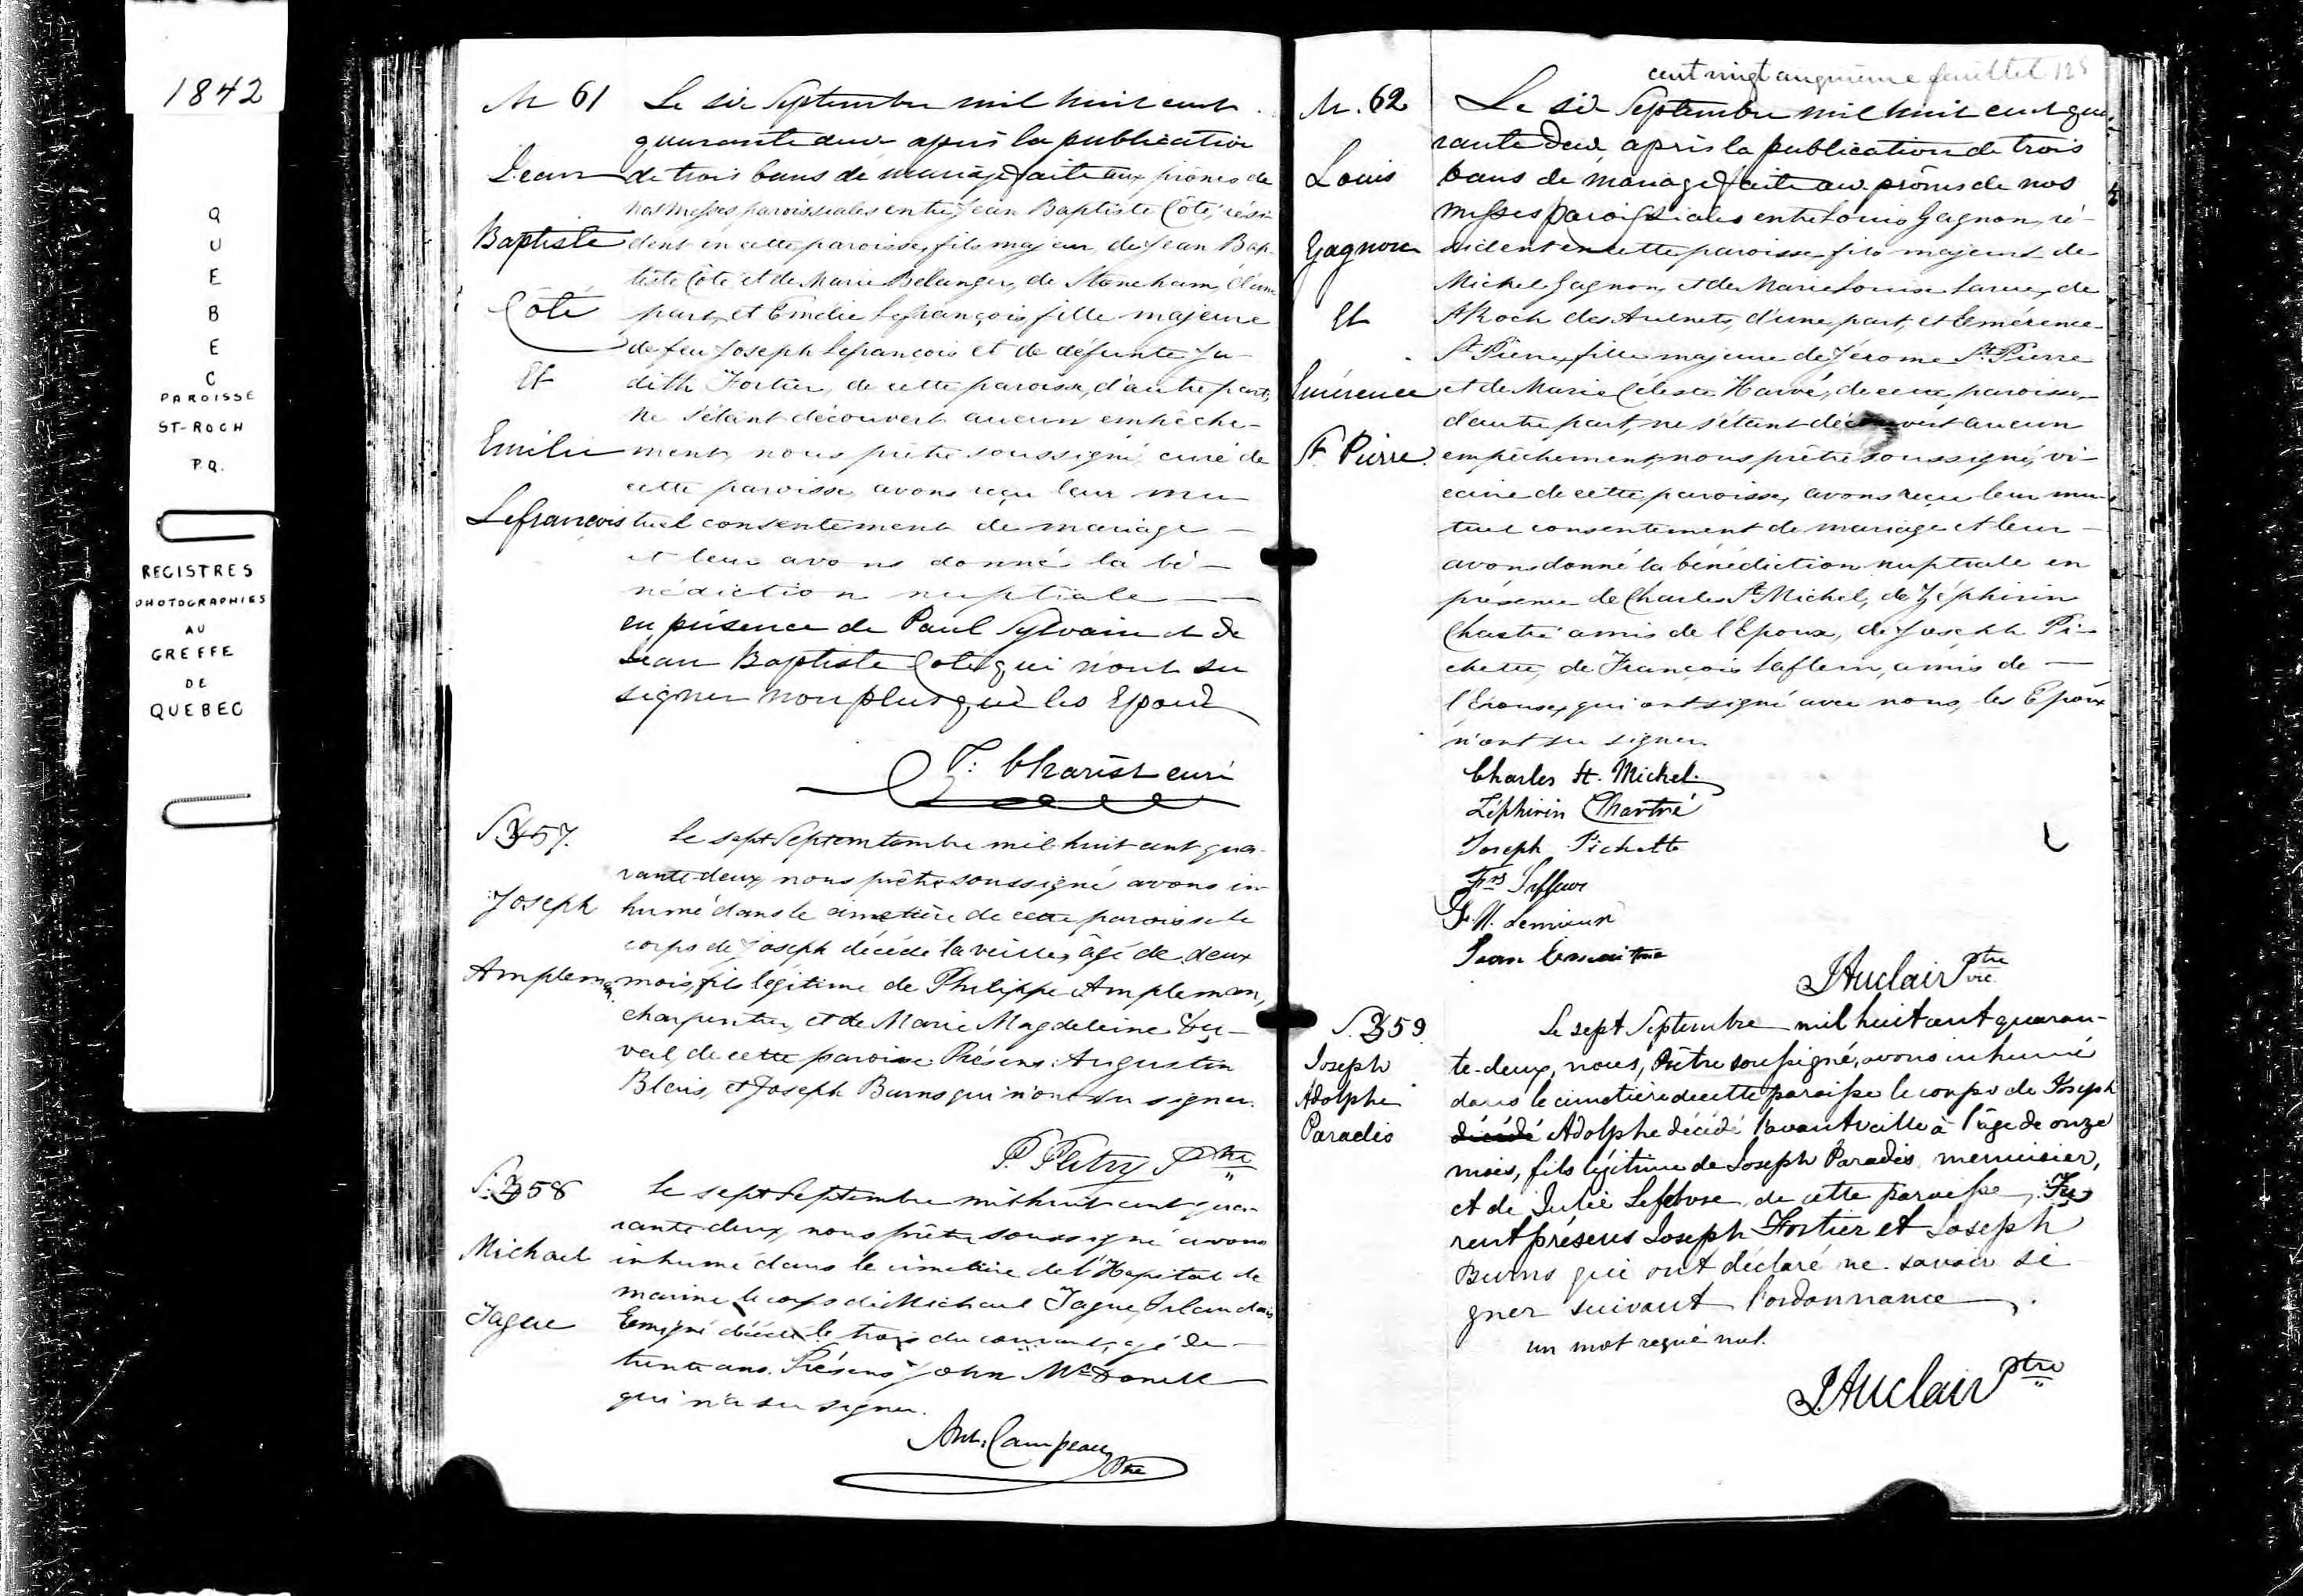 1842
QUEBEC
PAROISSE
ST-ROCH
P.Q.
REGISTRES
PHOTOGRAPHIES
AU
GREFFE
DE
QUEBEC
M 61
Jean
Baptiste
Côté
Et
Emilie
Lefrançois
Le six Septembre mil huit cent
quarante deux après la publication
de trois bans de mariage faite aux prônes de
nos messes paroissiales entre Jean Baptiste Côté, rési
dent en cette paroisse, fils majeur de Jean Bap
tiste Côté et de Marie Belanger, de Stoneham, d'une
part, et Emélie Lefrançois fille majeure
de feu Joseph Lefrancois et de défunte Ju-
dith Fortier, de cette paroisse, d'autre part,
ne s'étant découvert aucun empêche-
ment, nous prêtre soussigné curé de
cette paroisse, avons reçu leur mu
tuel consentement de mariage
et leur avons donné la bé-
nédiction nuptiale
en présence de Paul Sylvain et de
Jean Baptiste Coté qui n'ont su
signer non plus que les Epoux
Z: Charest curé
S. 357.
Joseph
Amplem an
Le sept Septemtembre mil huit cent qua-
rante-deux, nous prêtre soussigné avons in-
humé dans le cimetière de cette paroisse le
corps de Joseph décédé la veille, âgé de deux
mois, fils légitime de Philippe Ampleman,
charpentier, et de Marie Magdeleine Du-
val, de cette paroisse. Présens Augustin
Blais, et Joseph Burns qui n'ont su signer.
P. Patry Ptre
S. 358
Michael
Jague
Le sept Septembre mil huit cent qua-
rante deux, nous prêtre soussigné avons
inhumé dans le cimetière de l'Hopital de
marine le corps de Michael Jague, Irlandais
Emigré décédé le trois du courant, agé de
trente ans. Présens John McDonell
qui n'a su signer.
Ant. Campeau Ptre
cent vingt cinquième feuillet 125
M. 62
Louis
Gagnon
Et
Emérence
St. Pierre
Le six Septembre mil huit cent qua
rante Deux, après la publication de trois
bans de mariage faite aux prônes de nos
messes paroissiales entre Louis Gagnon, ré-
sident en cette paroisse, fils majeur de
Michel Gagnon, et de Marie Louise Larue, de
St Roch des Aulnets, d'une part, et Emérence
St. Pierre, fille majeure de Jérome St. Pierre
et de Marie Céleste Harvé, de cette paroisse,
d'autre part, ne s'étant découvert aucun
empêchement, nous prêtre soussigné, vi-
caire de cette paroisse, avons reçu leur mu-
tuel consentement de mariage et leur
avons donné la bénédiction nuptiale en
présence de Charles St. Michel, de Zéphirin
Chartré amis de l'Epoux, de Joseph Pi-
chette, de François Laflem, amis de
l'Epouse, qui ont signé avec nous, les Epoux
n'ont su signer.
Charles St. Michel
Zéphirin Chartré
Joseph Pichette
Frs
Lemieux
Jean
J Auclair Ptre
vic.
S. 359.
Joseph
Adolphe
Paradis
Le sept Septembre mil huit cent quaran-
te-deux, nous, Prêtre soussigné, avons inhumé
dans le cimetière de cette paroisse le corps de Joseph
décédé Adolphe décédé l'avant veille à l'âge de onze
mois, fils légitime de Joseph Paradis, menuisier,
et de Julie Lefebvre, de cette paroisse, Fu-
rent présens Joseph Fortier et Joseph
Burns qui ont déclaré ne savoir si-
gner suivant l'ordonnance.
un mot rayé nul.
J Auclair Ptre